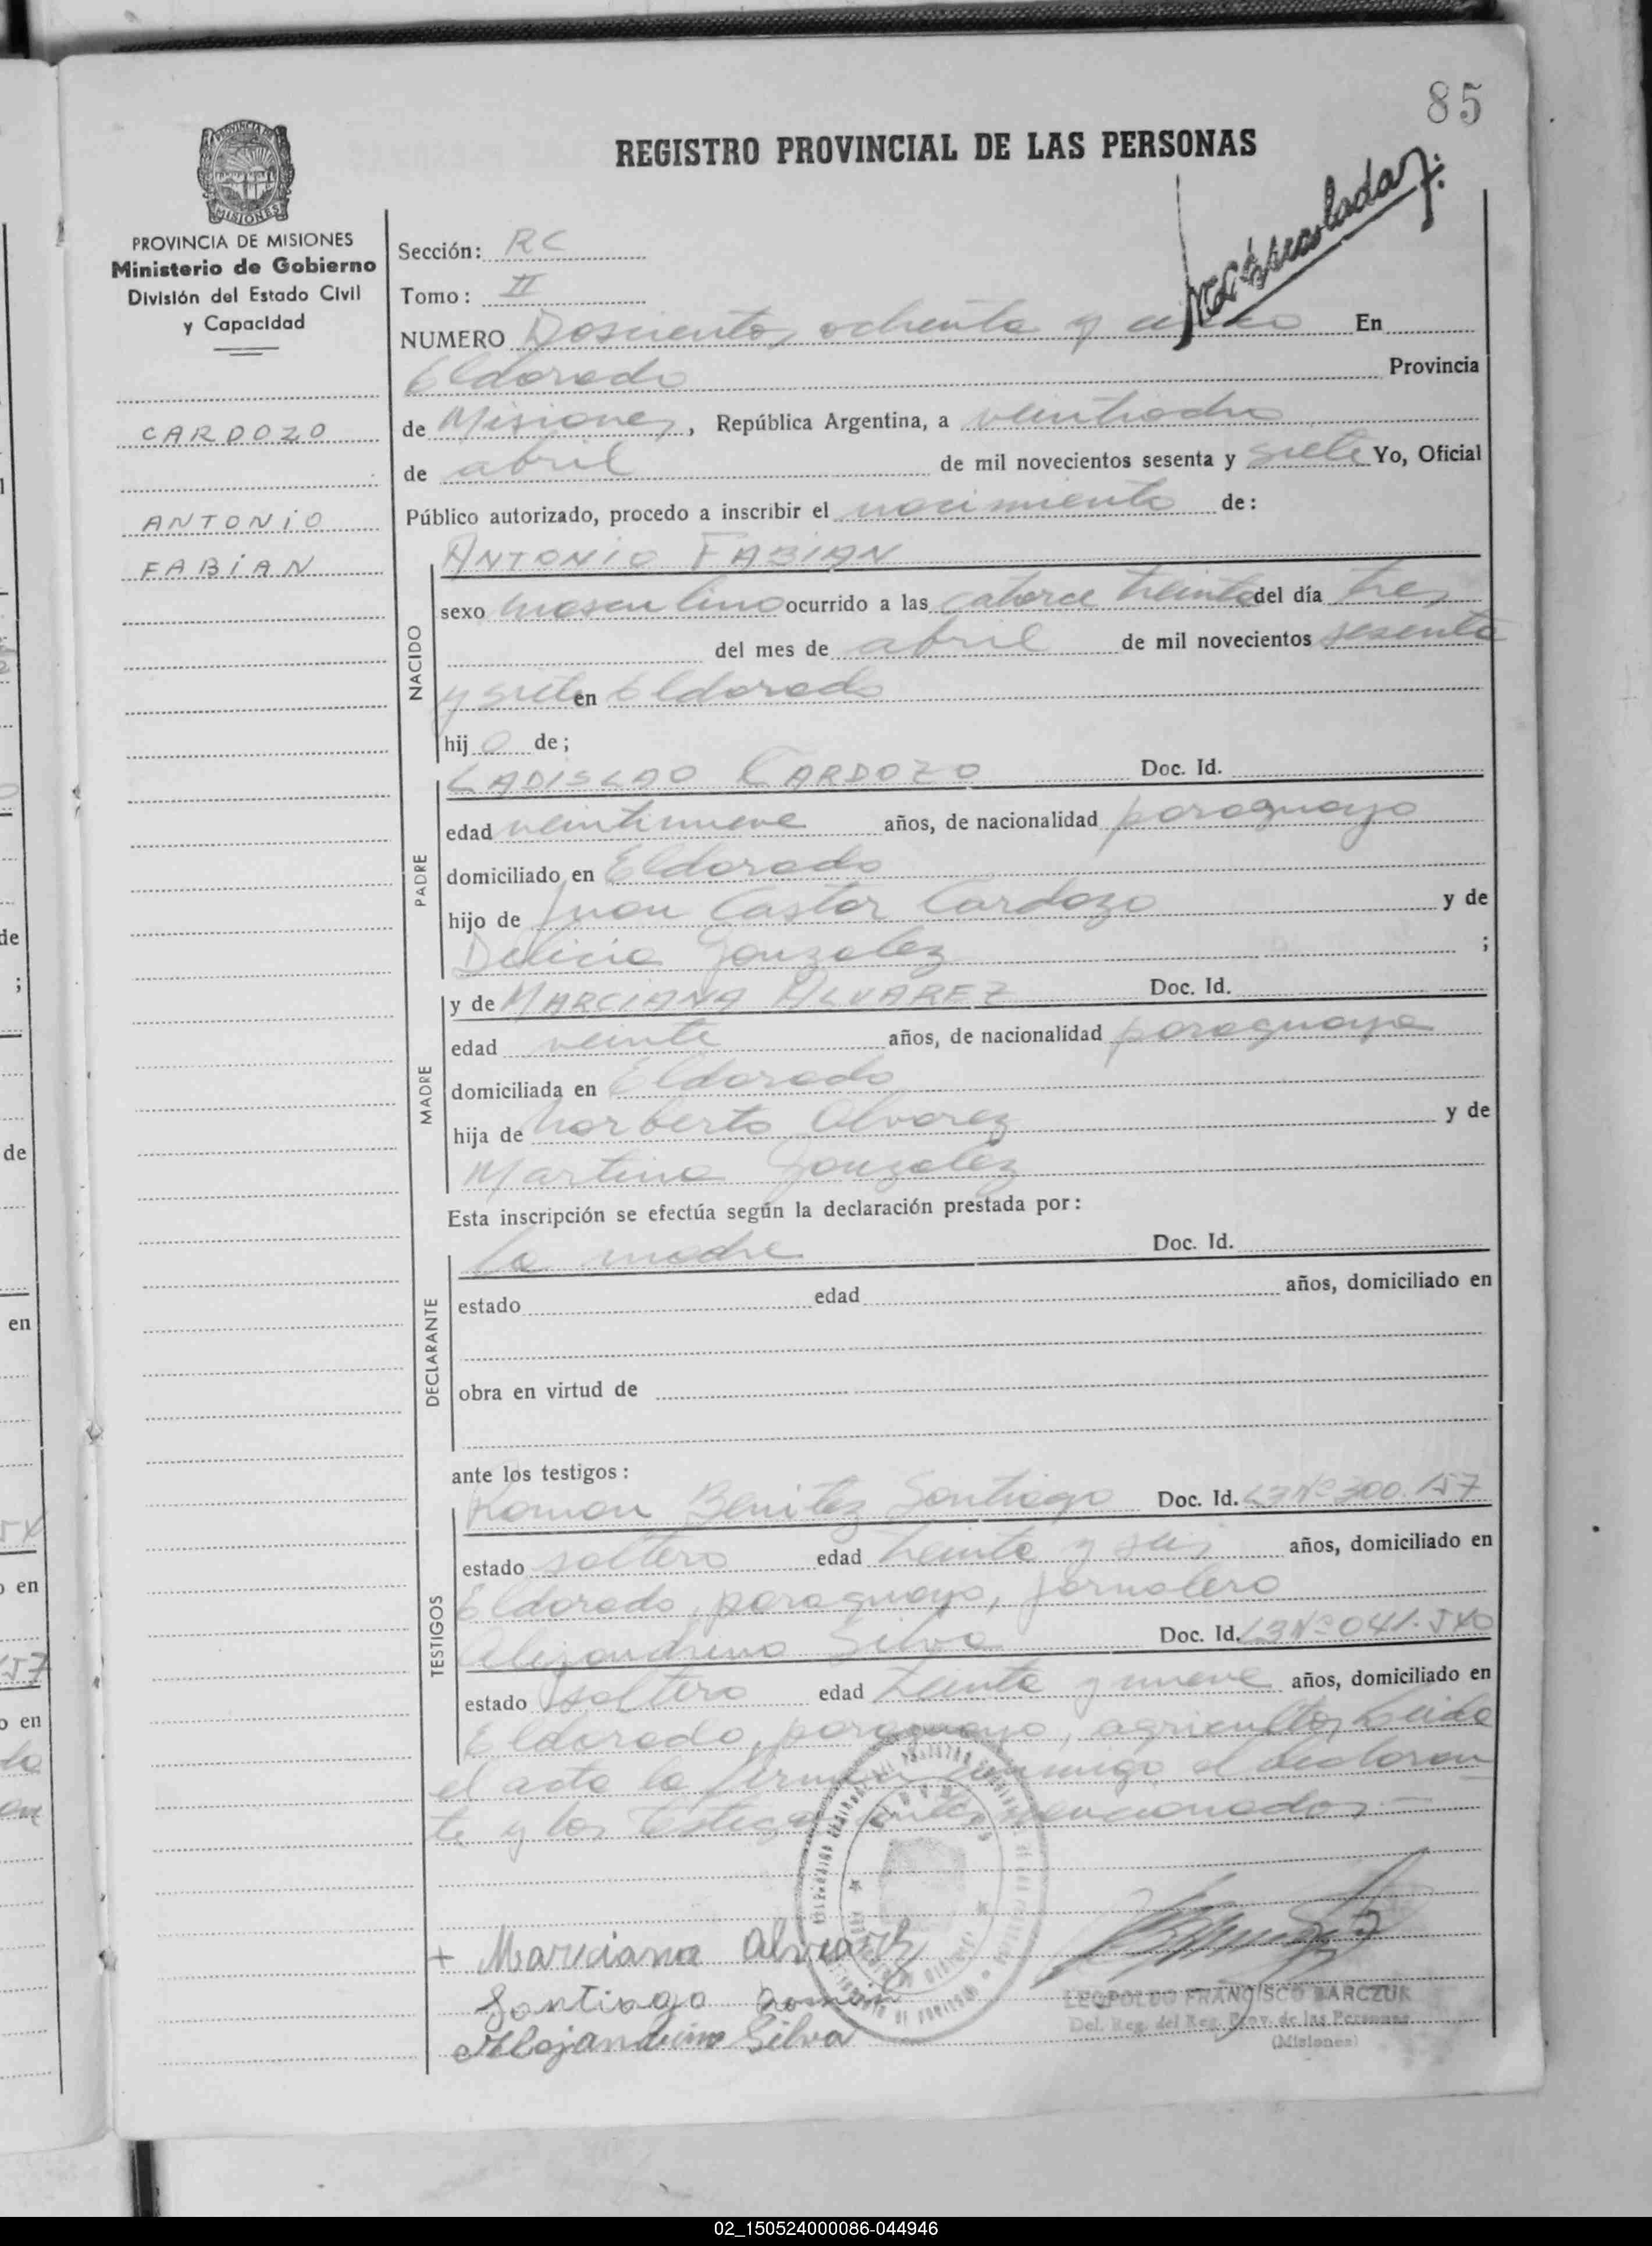 85
REGISTRO PROVINCIAL DE LAS PERSONAS
PROVINCIA DE MISIONES
MISIONES
PROVINCIA DE MISIONES
Ministerio de Gobierno
División del Estado Civil
y Capacidad
CARDOZO
ANTONIO
FABIAN
Sección: RC
Tomo: II
NUMERO Doscientos ochenta y En
Eldorado Provincia
de Misiones, República Argentina, a veintiocho
de abril de mil novecientos sesenta y siete Yo, Oficial
Público autorizado, procedo a inscribir el nacimiento de:
NACIDO
ANTONIO FABIAN
sexo masculino ocurrido a las catorce treinta del día tres
del mes de abril de mil novecientos sesenta
y siete en Eldorado
hij o de;
PADRE
LADISLAO CARDOZO Doc. Id.
edad veintinueve años, de nacionalidad paraguayo
domiciliado en Eldorado
hijo de Juan Castor Cardozo y de
Delicia Gonzalez ;
MADRE
y de MARCIANA ALVAREZ Doc. Id.
edad veinte años, de nacionalidad paraguaya
domiciliada en Eldorado
hija de Norberto Alvarez y de
Martina Gonzalez
Esta inscripción se efectúa según la declaración prestada por:
DECLARANTE
la madre Doc. Id.
estado edad años, domiciliado en
obra en virtud de
ante los testigos:
TESTIGOS
Roman Benitez Santiago Doc. Id. L3 Nº 300.157
estado soltero edad treinta y seis años, domiciliado en
Eldorado, paraguayo, jornalero
Alejandrino Silva Doc. Id. L3 Nº 041.540
estado soltero edad treinta y nueve años, domiciliado en
Eldorado, paraguayo, agricultor, Leida
el acta la firman conmigo el declaran
te y los testigos antes mencionados.—
+ Marciana Alvarez
Santiago Román
Alejandrino Silva
LEOPOLDO FRANCISCO BARCZUK
Del. Reg. del Reg. Prov. de las Personas
(Misiones)
de
;
de
en
o en
157
o en
02_150524000086-044946